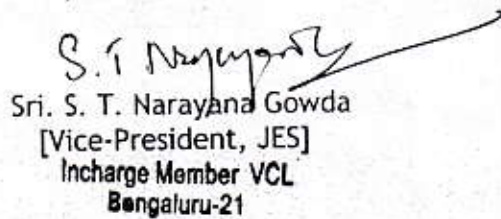 S. T Narayana
Sri. S. T. Narayana Gowda
[Vice-President, JES]
Incharge Member VCL
Bengaluru-21